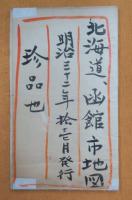 北海道函館市地図
明治三十二年拾壱月発行
珍品也